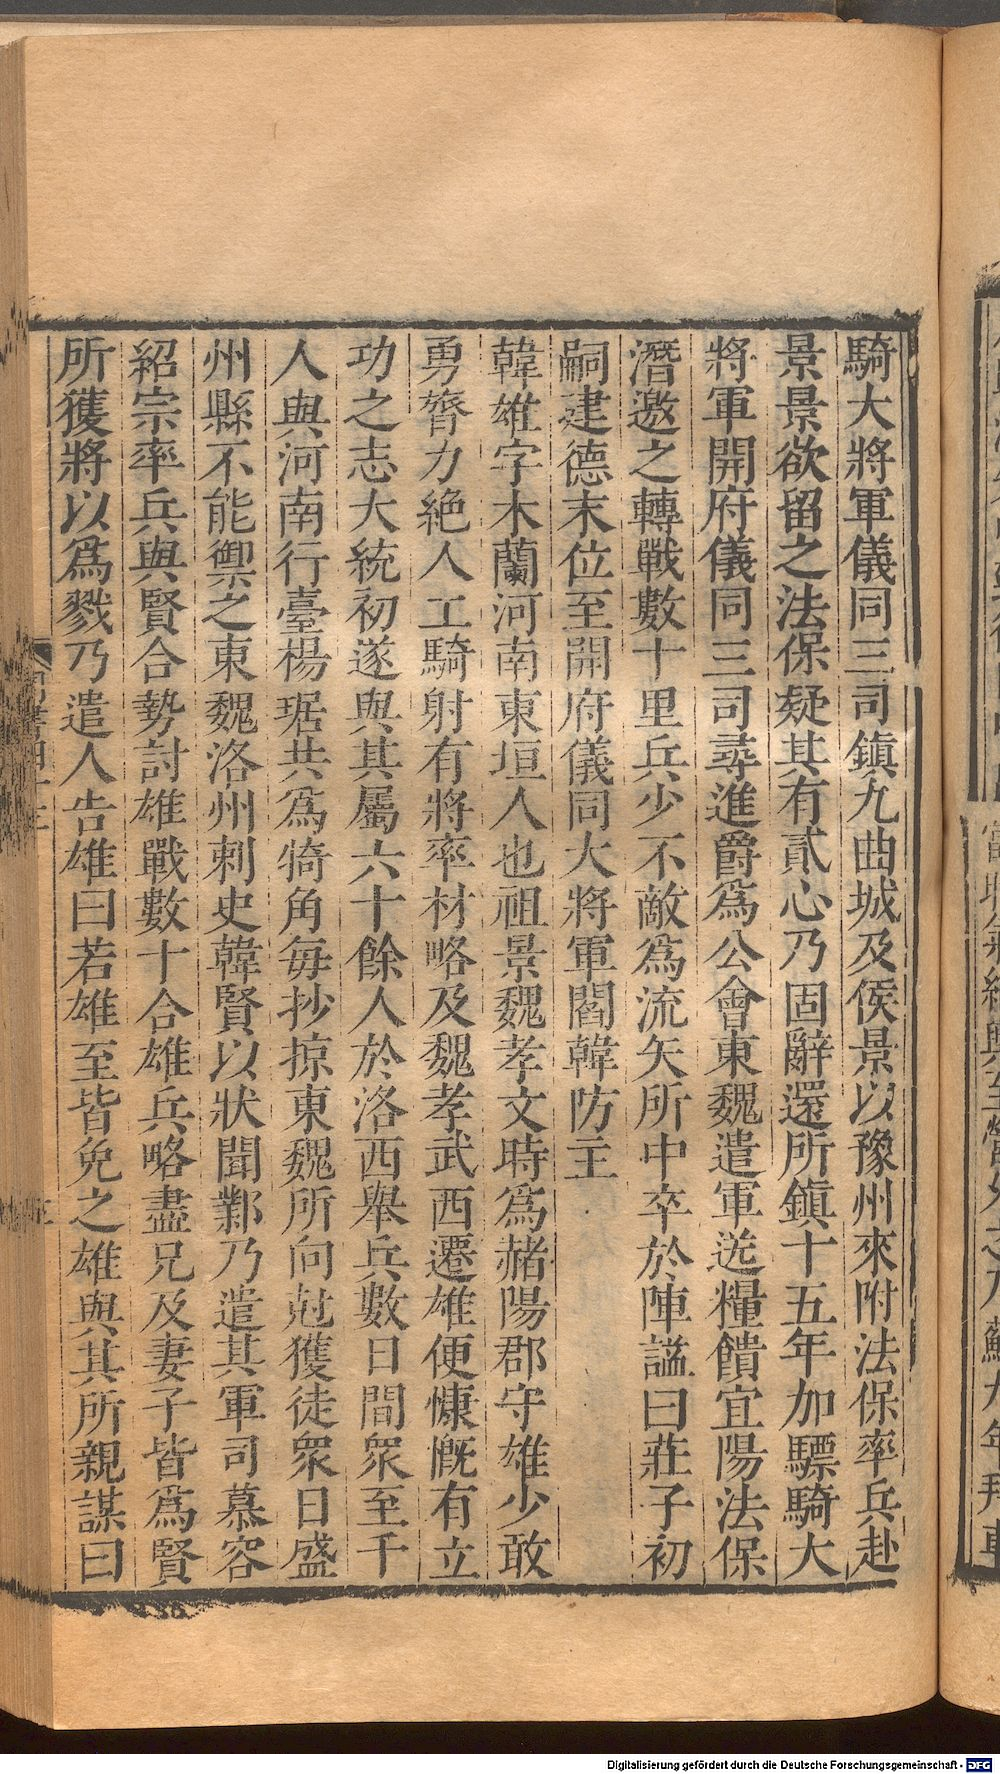 騎大將軍儀同三司鎮九曲城及侯景以豫州來附法保率兵赴
景景欲留之法保疑其有貳心乃固辭還所鎮十五年加驃騎大
將軍開府儀同三司尋進爵爲公會東魏遣軍送糧饋宜陽法保
潛邀之轉戰數十里兵少不敵爲流矢所中卒於陣謚曰莊子初
嗣建德末位至開府儀同大將軍閻韓防主
韓雄字木蘭河南東垣人也祖景魏孝文時爲赭陽郡守雄少敢
勇膂力絕人工騎射有將率材略及魏孝武西遷雄便慷慨有立
功之志大統初遂與其屬六十餘人於洛西舉兵數日間眾至千
人與河南行臺楊琚共爲犄角每抄掠東魏所向尅獲徒眾日盛
州縣不能禦之東魏洛州刺史韓賢以狀聞鄴乃遣其軍司慕容
紹宗率兵與賢合勢討雄戰數十合雄兵略盡兄及妻子皆爲賢
所獲將以爲戮乃遣人告雄曰若雄至皆免之雄與其所親謀曰
Digitalisierung gefördert durch die Deutsche Forschungsgemeinschaft - DFG